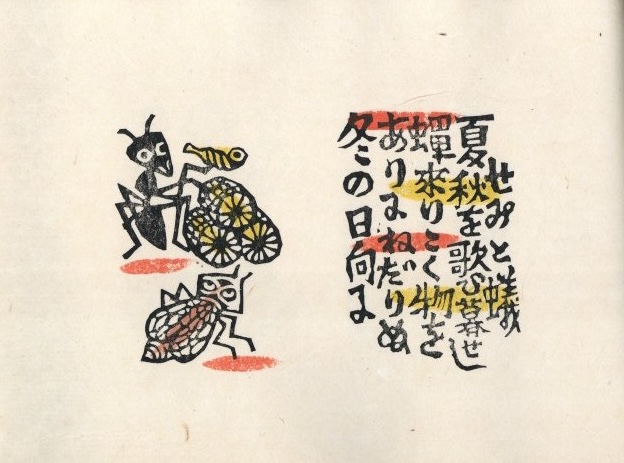 せみと蟻
夏秋を歌ひ暮せし
蟬來りこく物を
ありにねだりぬ
冬の日向に